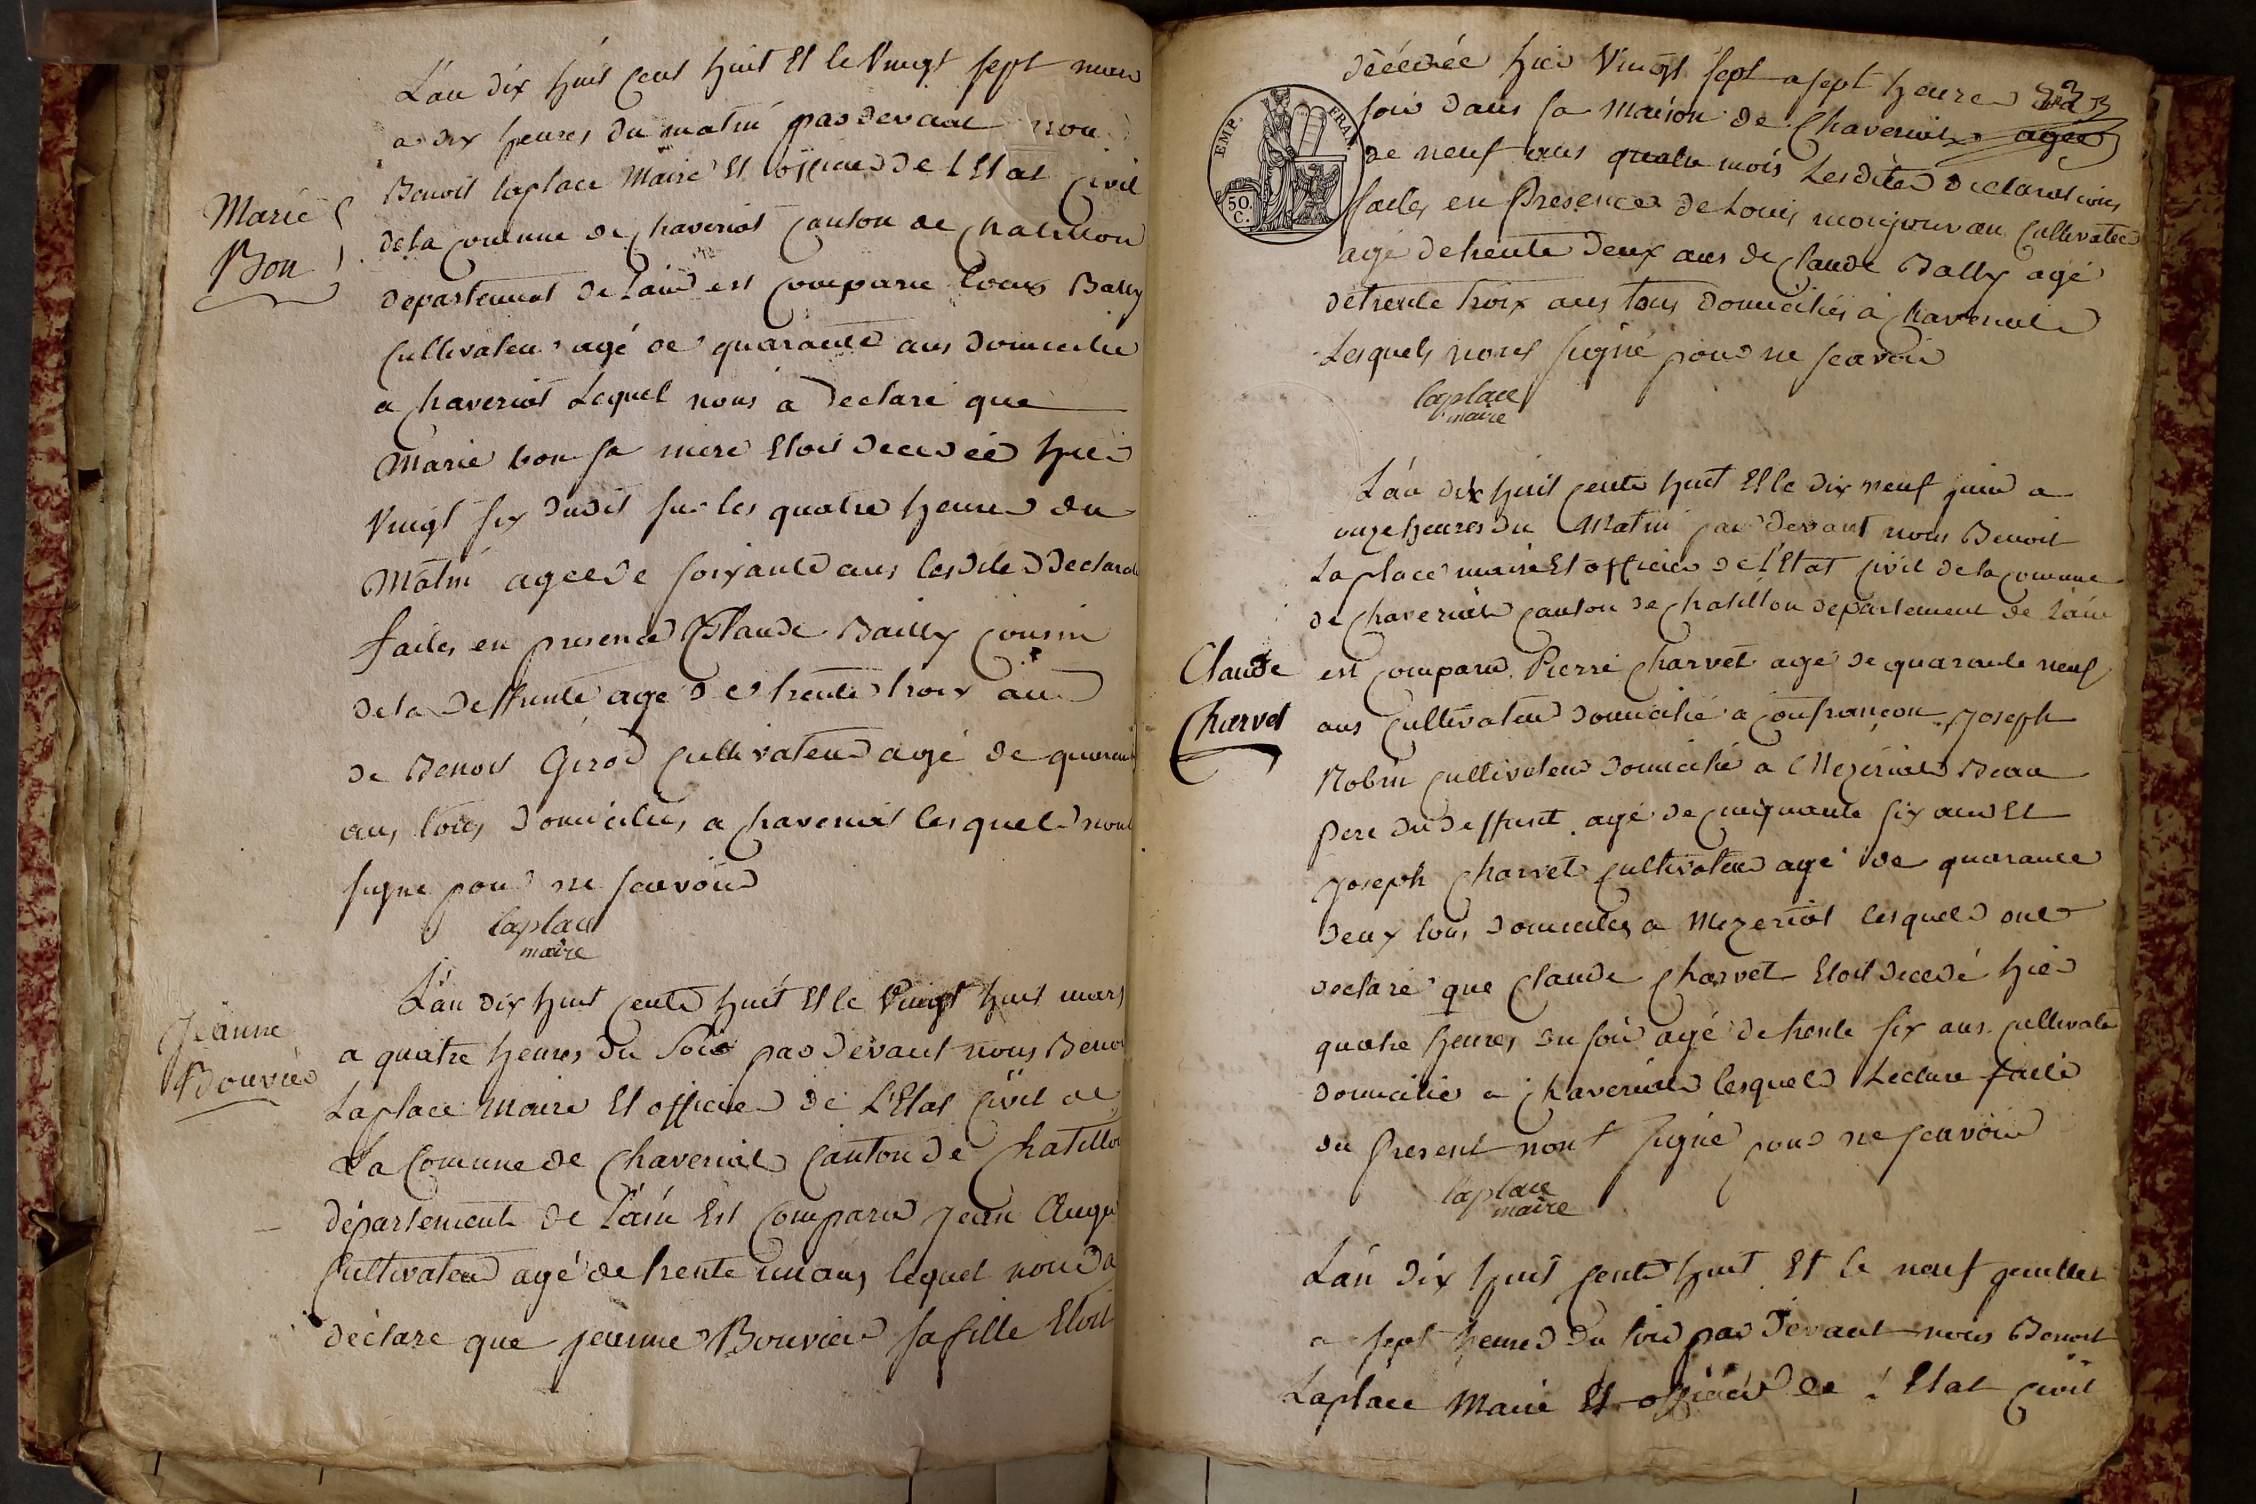 L'an dix huit cent huit Et le Vingt sept mars
a dix heures du matin par devant nous
Benoit laplace Maire Et officier de l'Etat Civil
Marie
Bon
de la comune de chaveriat Canton de chatillon
departement de l'ain est comparu Louis Bally
Cultivateur agé de quarante ans domicilié
a chaveriat Lequel nous a declaré que
Marie bon sa mere Etoit decedée hier
Vingt six dudit sur les quatre heures du
Matin agée de soixante ans lesdites declarat
faites en presence Claude Bailly cousin
de la deffunte agé de trente trois ans
de Benoit Girod Cultivateur agé de quarant
ans tous domicilies a chaveriat lesquels nont
signé pour ne scavoir
laplace
maire
Jeanne
Bouvier
L'an dix huit cents huit Et le Vingt huit mars
a quatre heures du Soir par devant nous Benoi
Laplace Maire Et officier de L'Etat Civil de
La Comune de Chaveriat Canton de Chatillo
département de l'ain Est Comparu jean
Cultivateur agé de trente un ans lequel nous a
déclare que jeanne Bouvier sa fille Etoit
décédée hier Vingt sept a sept heures
soir dans sa Maison de Chaveriat agée
de neuf ans quatre mois Lesdites declarations
EMP. FRAN
50.
C.
faites en Presence de Louis monjouvan Cultivateur
agé de trente deux ans de Claude Bally agé
de trente trois ans tous domiciliés a chaveriat
Lesquels nont signé pour ne scavoir
laplace
maire
L'an dix huit cents huit Et le dix neuf juin a
onze heures du Matin par devant nous Benoit
Laplace maire Et officier de l'Etat Civil de la comune
de chaveriat canton de chatillon departement de l'ain
Claude
Charvet
est comparu Pierre Charvet agé de quarante neuf
ans Cultivateur domicilié a Confrançon joseph
Robin cultivateur domicilié a Mezeriat Beau
pere du deffunt agé de cinquante six ans Et
joseph charvet cultivateur agé de quarante
deux tous domiciles a Mezeriat lesquels ont
declaré que Claude Charvet Etoit decedé hier
quatre heures du soir agé de trente six ans cultivate
domicilié a chaveriat lesquels Lecture faite
du present nont signé pour ne scavoir
laplace
maire
L'an dix huit cents huit Et le neuf juillet
a sept heures du soir par devant nous Benoit
Laplace Maire Et officier de l'Etat Civil